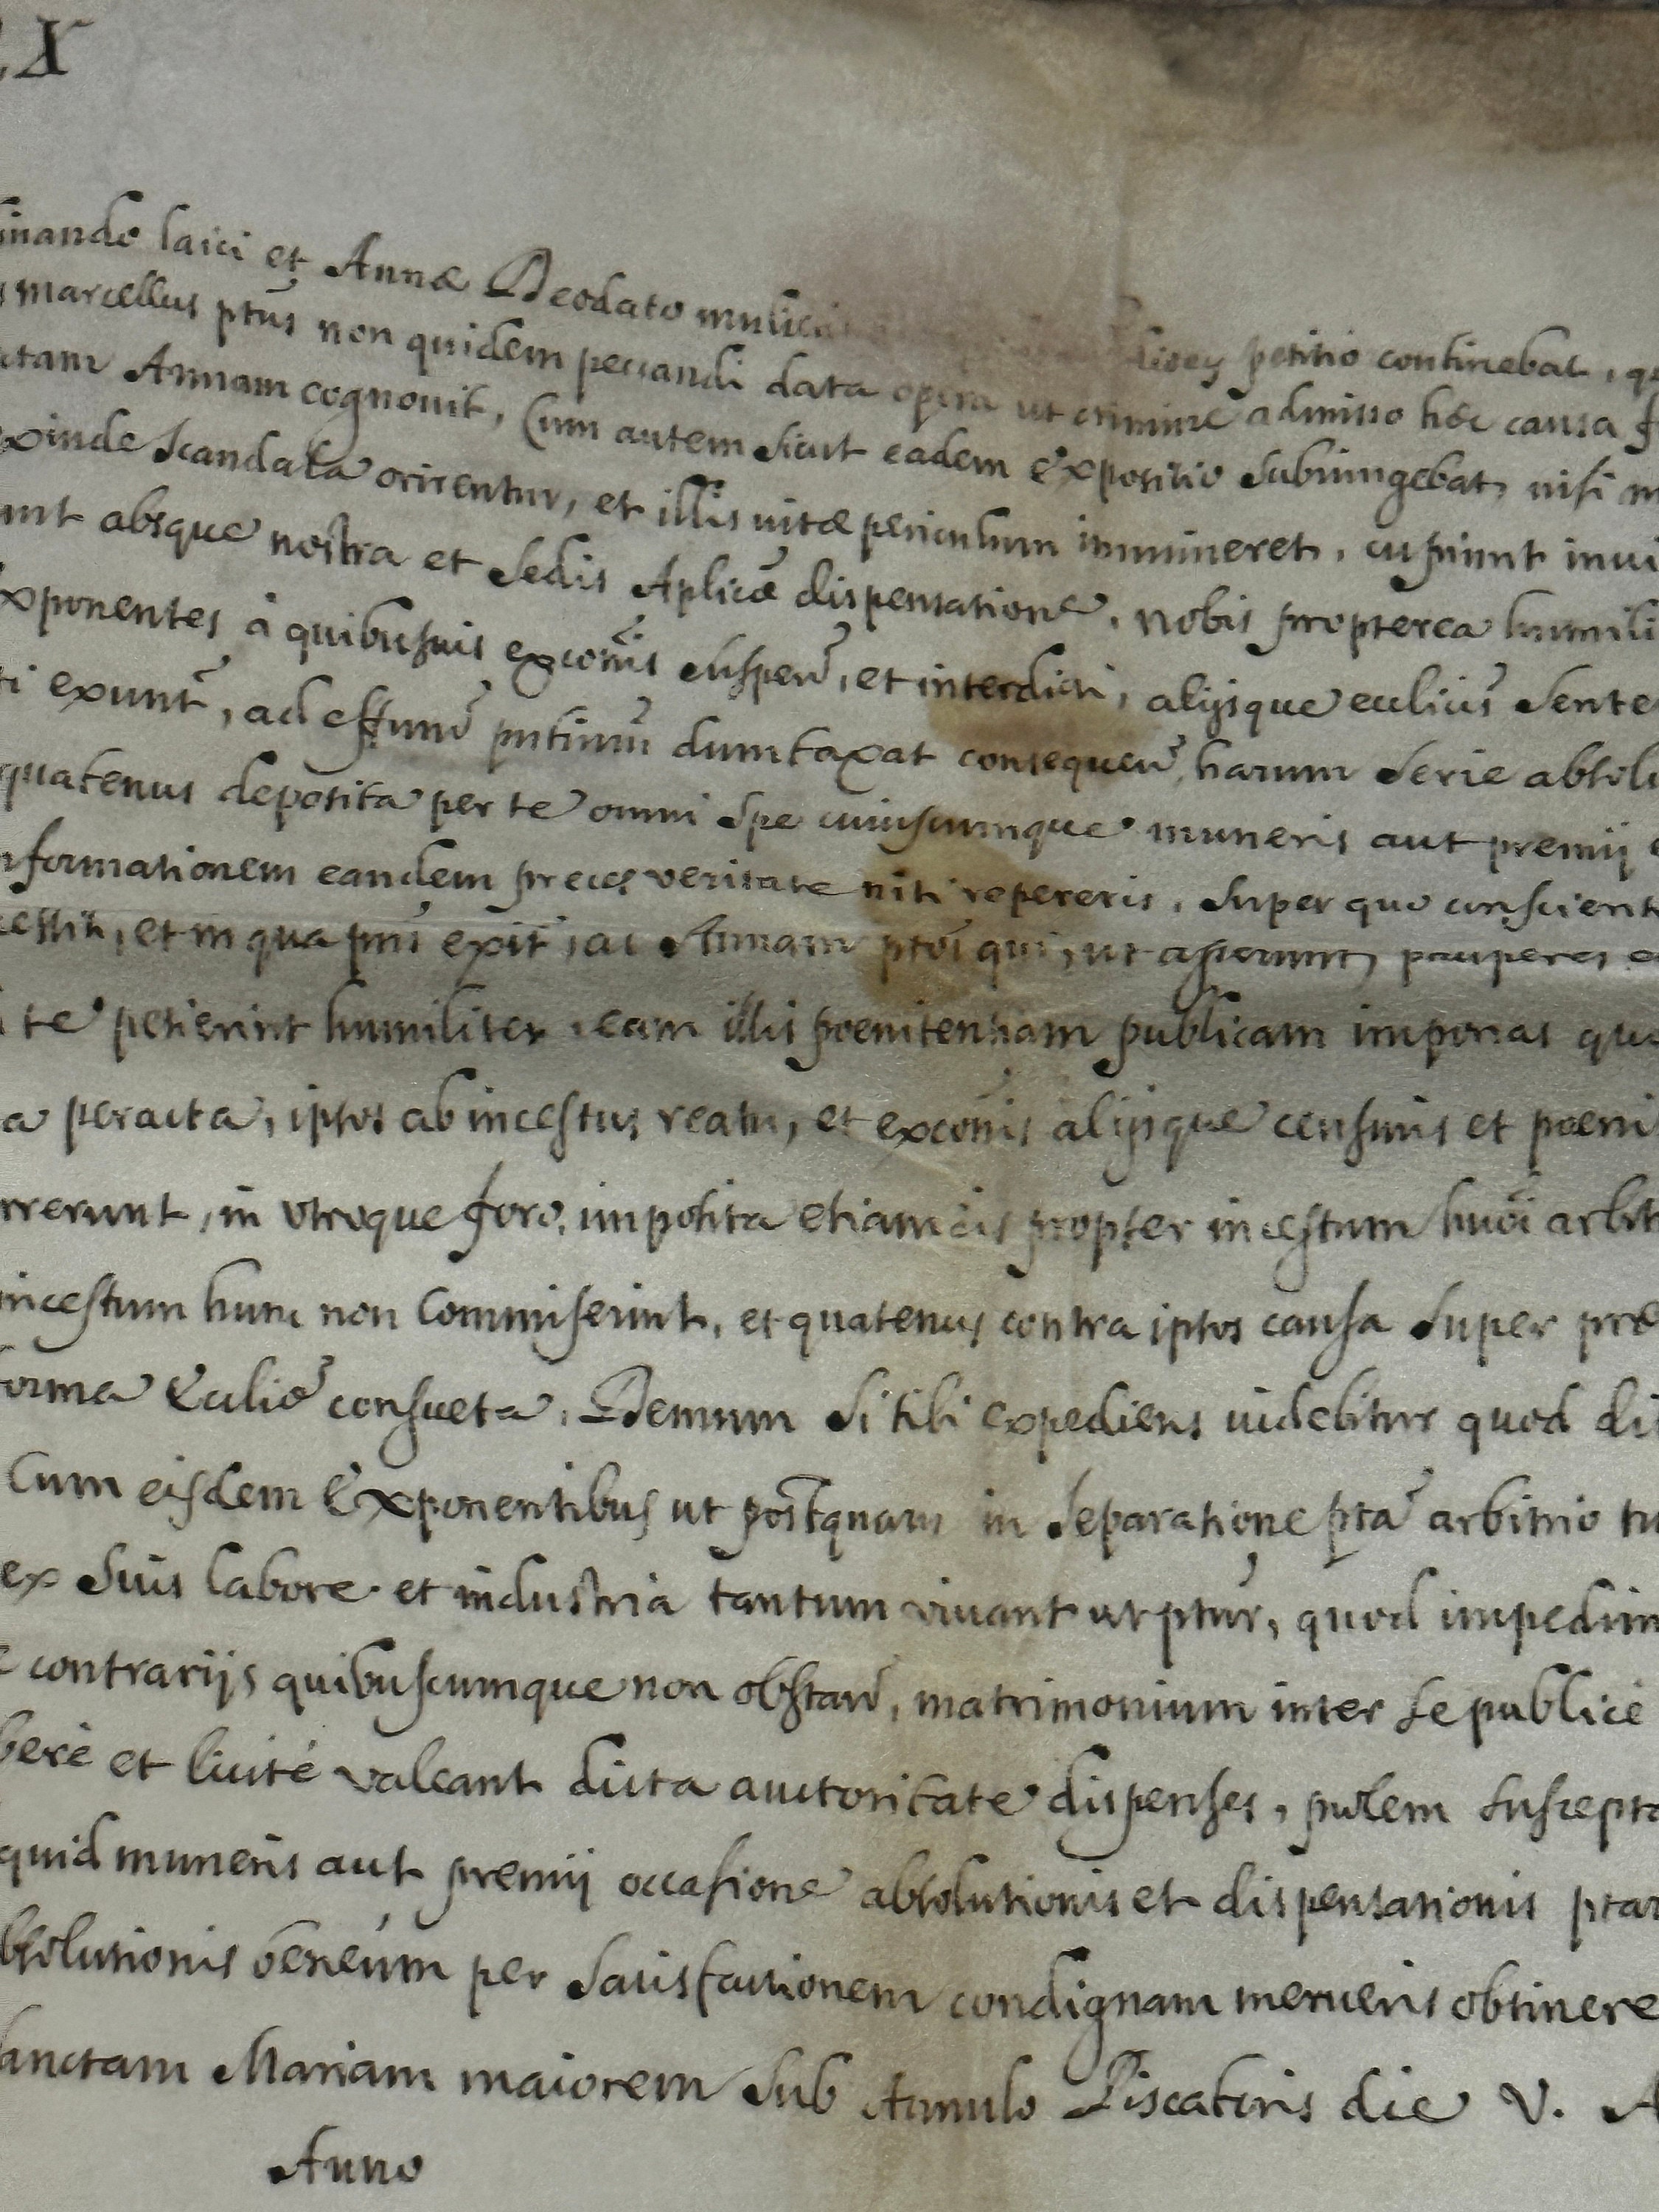 X
inando laici et Annæ Deodato mulie petitio continebat, qu
marcellus ptus non quidem peccandi data opera ut crimine admisso hoc causa f
atam Annam cognovit, Cum autem sicut eadem expositio subiungebat, nisi m
xinde scandala orirentur, et illis vitæ periculum immineret, cupiunt invi
unt absque nostra et Sedis Aplicæ dispensatione, nobis propterea humili
xponentes à quibusuis excõis suspen, et interdicti, alijsque ecclicis Sente
ti exunt, ad effum pntium dumtaxat consequen, harum serie absolu
quatenus deposita per te omni spe cuiuscumque muneris aut premij
nformationem eandem preces veritate niti repereris, super quo conscient
cessit, et in qua pns exit, ac Annam ptos qui, ut asserunt, pauperes
te petierint humiliter, eam illis pœnitentiam publicam imponas qu
a peracta, iptos ab incestus reatu, et excõis alijsque censuris et pœni
rrerunt, in utroque foro, imposita etiam eis propter incestum huoi arbit
incestum hunc non Commiserint, et quatenus contra iptos causa super præ
forma Ecclie consueta, Demum si tibi expediens videbitur quod di
Cum eisdem Exponentibus ut postquam in separatione pta arbitrio tu
ex suis labore et industria tantum vivant ut ptur, quod impedim
contrarijs quibuscumque non obstan, matrimonium inter se publicè
berè et licité valeant dicta auctoritate dispenses, prolem suscepta
quid muneris aut premij occasione absolutionis et dispensationis ptar
bsolutionis beneum per satisfactionem condignam merueris obtinere
Sanctam Mariam maiorem sub Annulo Piscatoris die V. A
Anno